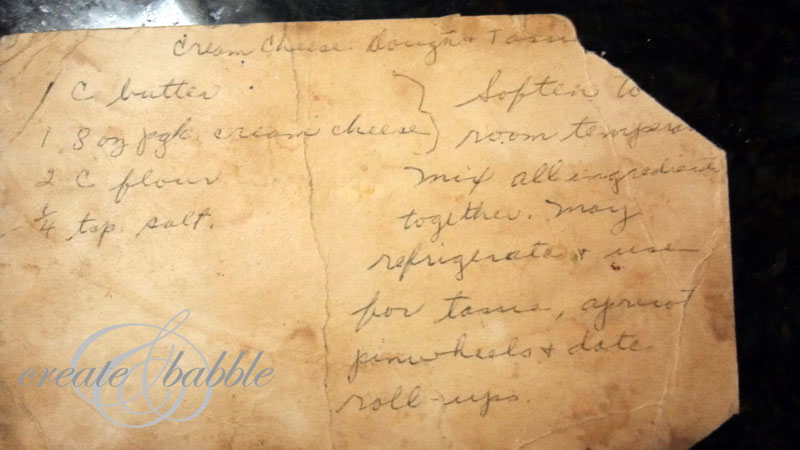 Cream Cheese Dough + Tassi
1 C butter
1 8 oz pgk cream cheese
2 C flour
1/4 tsp salt.
Soften to
room tempera
Mix all ingredients
together. May
refrigerate + use
for tassie, apricot
pinwheels + date
roll-ups.
create & babble